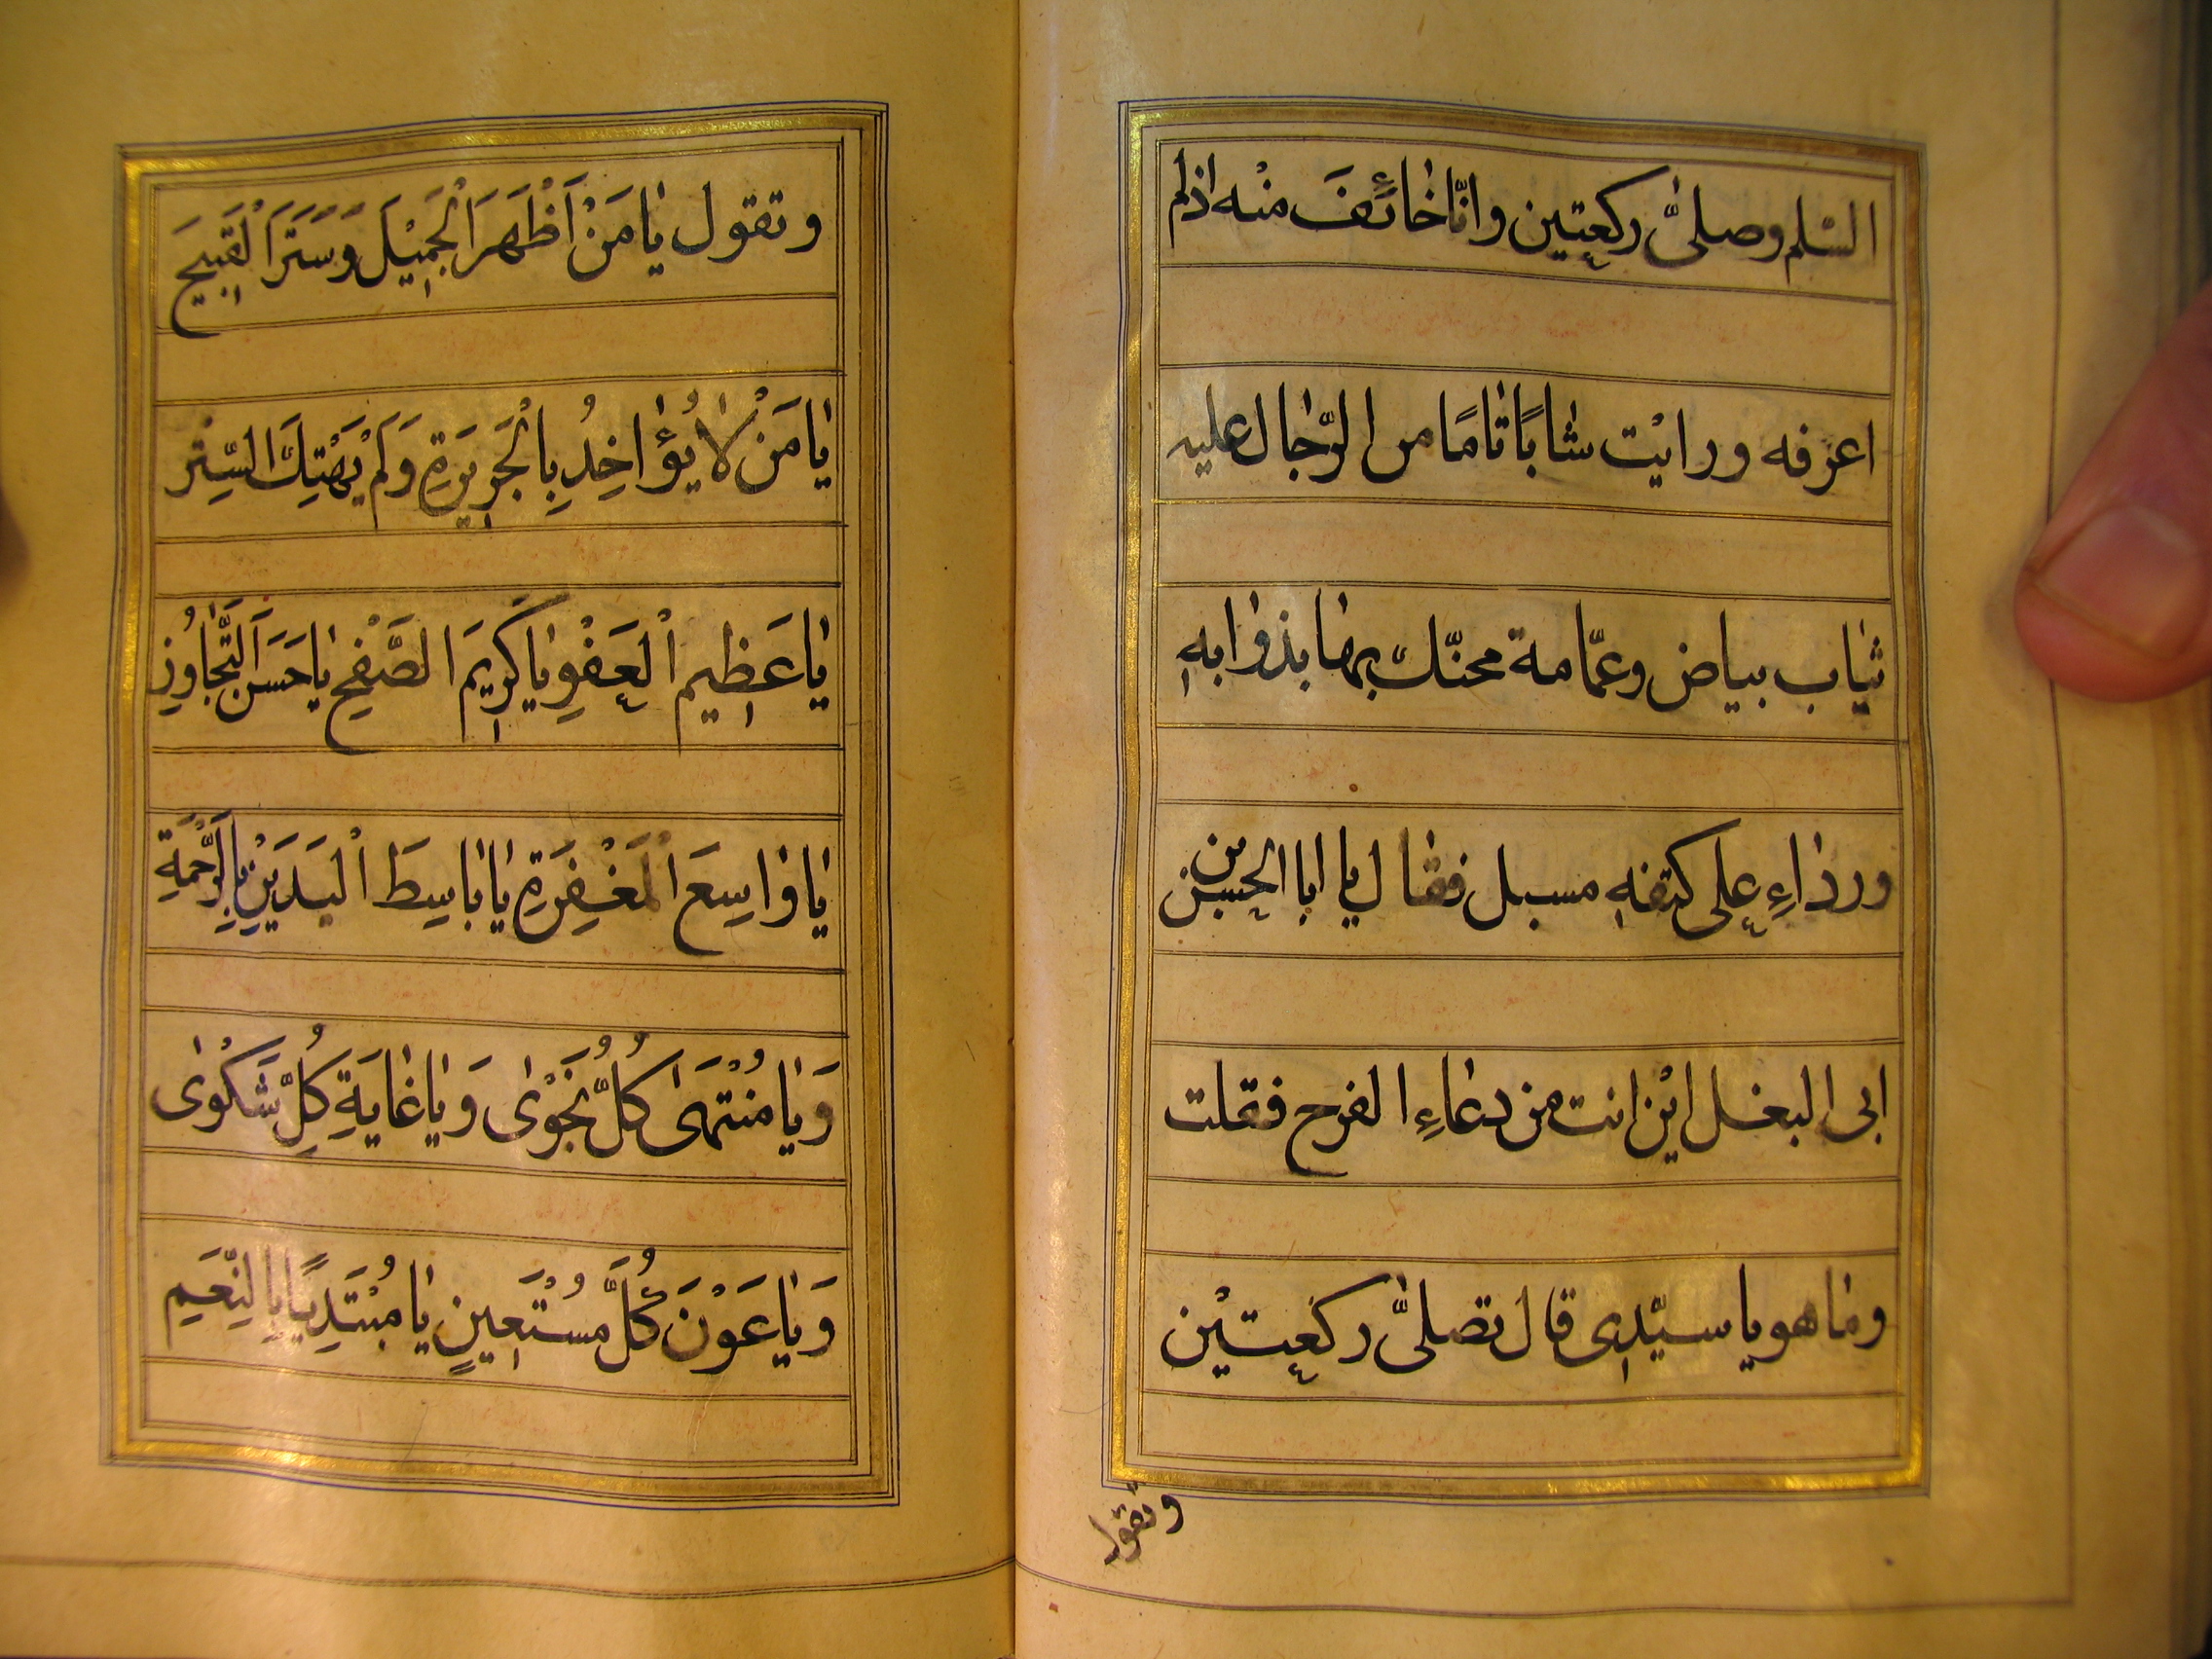 السّلم وصلىّٰ ركعتين وانّا خائفَ منْه اذلم
اعرفه ورايْت شاباً تامًا من الرّجال عليه
ثياب بياض وعمّامة محنّك بها بذوابه
ورداءِ على كتفه مسبل فقال يا ابا الحسين بن
ابى البغل ايْن انت من دعاءِ الفرج فقلت
وما هو يا سيّدى قال تصلىّ ركعتيْن
وتقول
وتقول يٰا مَنْ اَظْهَرَ الْجَمِيْلَ وَسَتَرَ الْقَبِيحَ
يٰا مَنْ لٰا يُؤٰاخِذُ بِالْجَرِيرَةِ وَلَمْ يَهْتِكَ السِّتْر
يٰا عَظِيم الْعَفْوِ يٰا كَرِيمَ الصَّفْحِ يٰا حَسَنَ التَّجٰاوُزِ
يٰا وٰاسِعَ الْمَغْفِرَةِ يٰا بٰاسِطَ الْيَدَيْنِ بِالرَّحْمَةِ
وَيٰا مُنْتَهىٰ كُلِّ نَجْوٰى وَيٰا غٰايَةِ كُلِّ شَكْوٰى
وَيٰا عَوْنَ كُلَّ مُسْتَعِينٍ يٰا مُبْتَدِيًا بِالنِّعَمِ